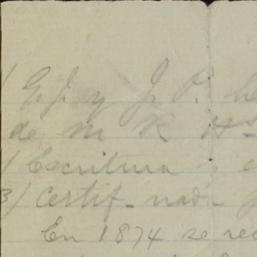 E. J. y J. P.
de M R H
Escritura y
3) Certif. nada
En 1874 se rec